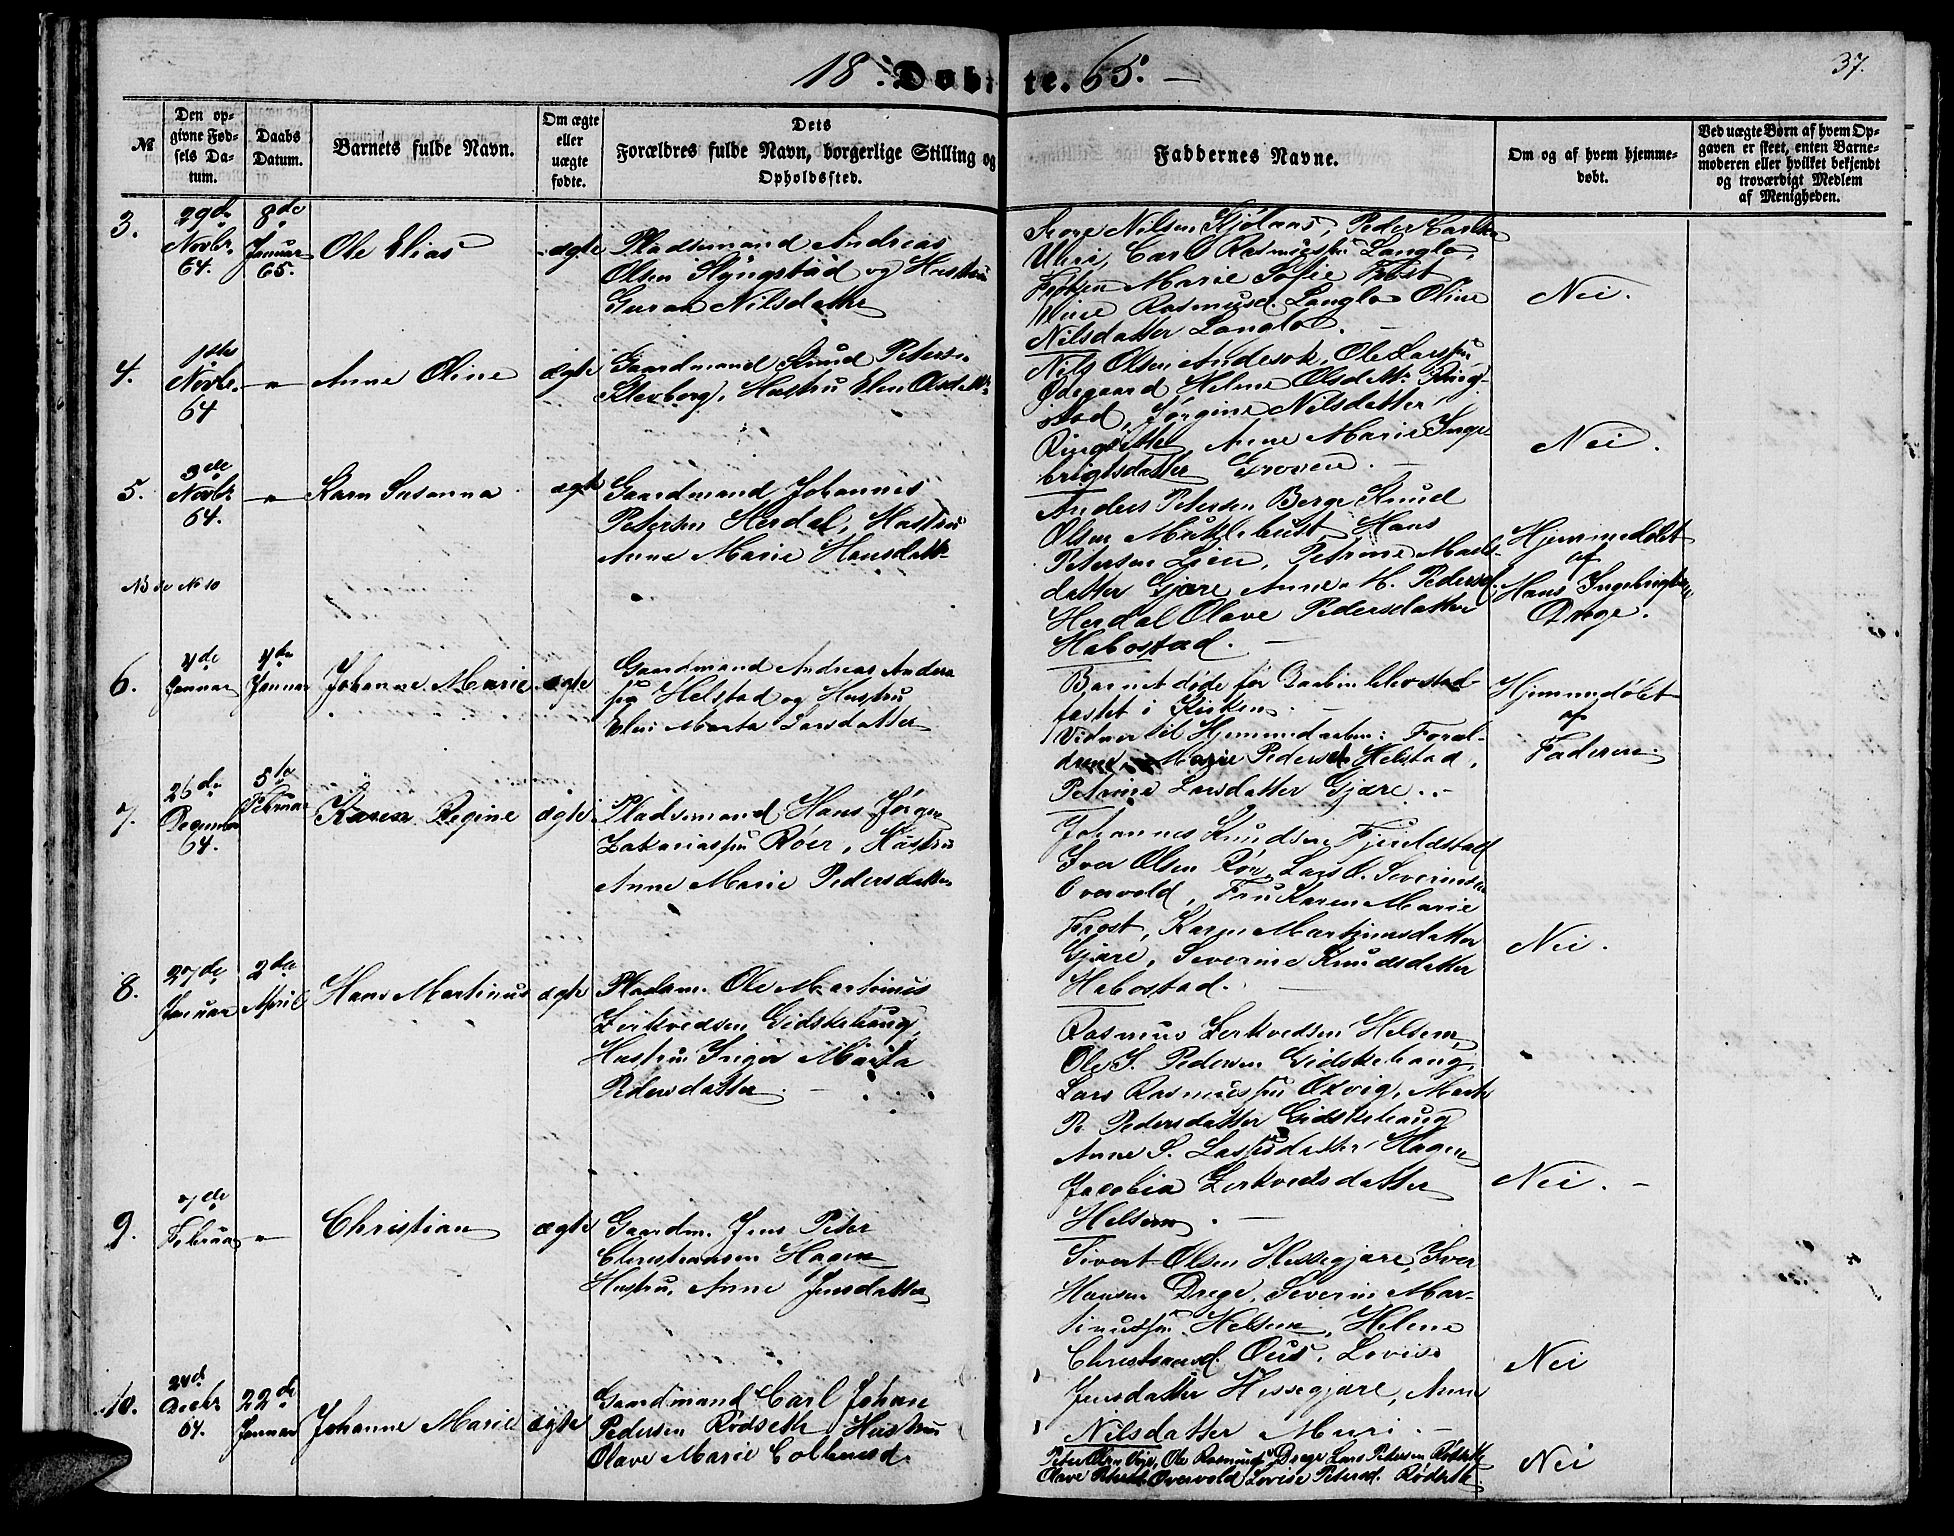 18 Døbte. 65.
37.
№
Den opgivne Fødsels Datum.
Daabs Datum.
Barnets fulde Navn.
Om ægte eller uægte fødte.
Dets Forældres fulde Navn, borgerlige Stilling og Opholdssted.
Faddernes Navne.
Om og af hvem hjemmedøbt.
Ved uægte Børn af hvem Opgaven er skeet, enten Barnemoderen eller hvilket bekjendt og troværdigt Medlem af Menigheden.
3.
29de
Novbr.
64.
8de
Januar
65.
Ole Elias
ægte
Pladsemand Andreas
Olsen Slyngstad og Hustru
Nilsdatter
Nilsen
Carl Rasmusen Langlo,
Marie Sofie Frost
Rasmusd. Langlo Oline
Nilsdatter Langlo.
Nei.
4.
1ste
Novbr.
64
— " —
Anne Oline
ægte
Gaardmand Knud Peters.
Hustru Elen Olsdattr.
Nils Olsen Ole Larssen
Ødegaard, Helene Olsdattr Ring-
stad, Jørgine Nilsdatter
Anne Marie Inge
brigtsdatter Groven. —
Nei.
5.
3die
Novbr.
64.
— " —
Karn Susanna
ægte
Gaardmand Johannes
Petersen Herdal, Hustru
Anne Marie Hansdatt.
NB se No 10
Anders Petersen Berge Knud
Olsen Myklebust, Hans
Petersen Lien, Petrine Mads-
datter Gjære Anne M. Pedersd.
Herdal Olave Pedersdatter
Habostad. —
Hjemmedøbt
af
Hans Ingebrigtsen
Drege.
6.
4de
Januar
4de
Januar
Johanne Marie
ægte
Gaardmand Andreas Anders
sen Helstad og Hustru
Elen Marta Larsdatter
Barnet døde før Daaben blev stad-
fæstet i Kirken. —
Vidner til Hjemmedaaben: Foræl-
drene, Marie Pedersd. Helstad,
Petrine Larsdatter Gjære. —
Hjemmedøbt
af
Faderen.
7.
26de
December
64.
5te
Februar
Karen Regine
ægte
Pladsemand Hans Jørgen
Zakariassen Røer, Hustru
Anne Marie Pedersdatter
Johannes Knudsen Fjeldstad
Iver Olsen Røer, Lars O. Severinsen
Overvold, Fru Karen Marie
Frost, Karen Martinusdatter
Gjære, Severine Knudsdatter
Habostad. —
Nei.
8.
27de
Januar
2den
April
Hans Martinus
ægte
Pladsm. Ole Martinus
Lerkvedsen Gidskehaug,
Hustru Inger Marta
Pedersdatter. —
Rasmus Lerkvedsen Helsem,
Ole S. Pedersen Gidskehaug,
Lars Rasmussen Oxvig, Mart
P. Pedersdatter Gidskehaug
Anne S. Larsdatter Hagen
Jacobia Lerkvedsdatter
Helsem. —
Nei. —
9.
7de
Februar
— " —
Christian
ægte
Gaardm. Jens Peter
Christiansen Hagen
Hustru, Anne Jensdatter
Sivert Olsen Hessegjære, Iver
Hansen Drege, Severin Mar-
tinussen Helsem, Helene
Christiansd. Ous, Lovise
Jensdatter Hessegjære, Anne
Nilsdatter Muri. —
Nei
10.
24de
Decbr.
64.
22de
Januar
Johanne Marie
ægte
Gaardmand Carl Johan
Pedersen Rødseth, Hustru
Olave Marie
Peter Olsen Ole Rasmusen Drege Lars Petersen Rødseth
Olave Overvold Lovise Petersd. Rødseth.
Nei